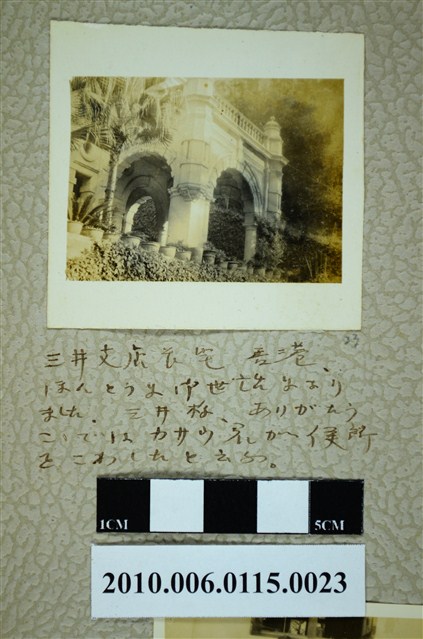 23
三井支店長宅 香港、
ほんとうに御世話になり
ました. 三井様、ありがとう
こゝでは カサワ 君が 便所
をこわしたと云ふ。
1CM
5CM
2010.006.0115.0023